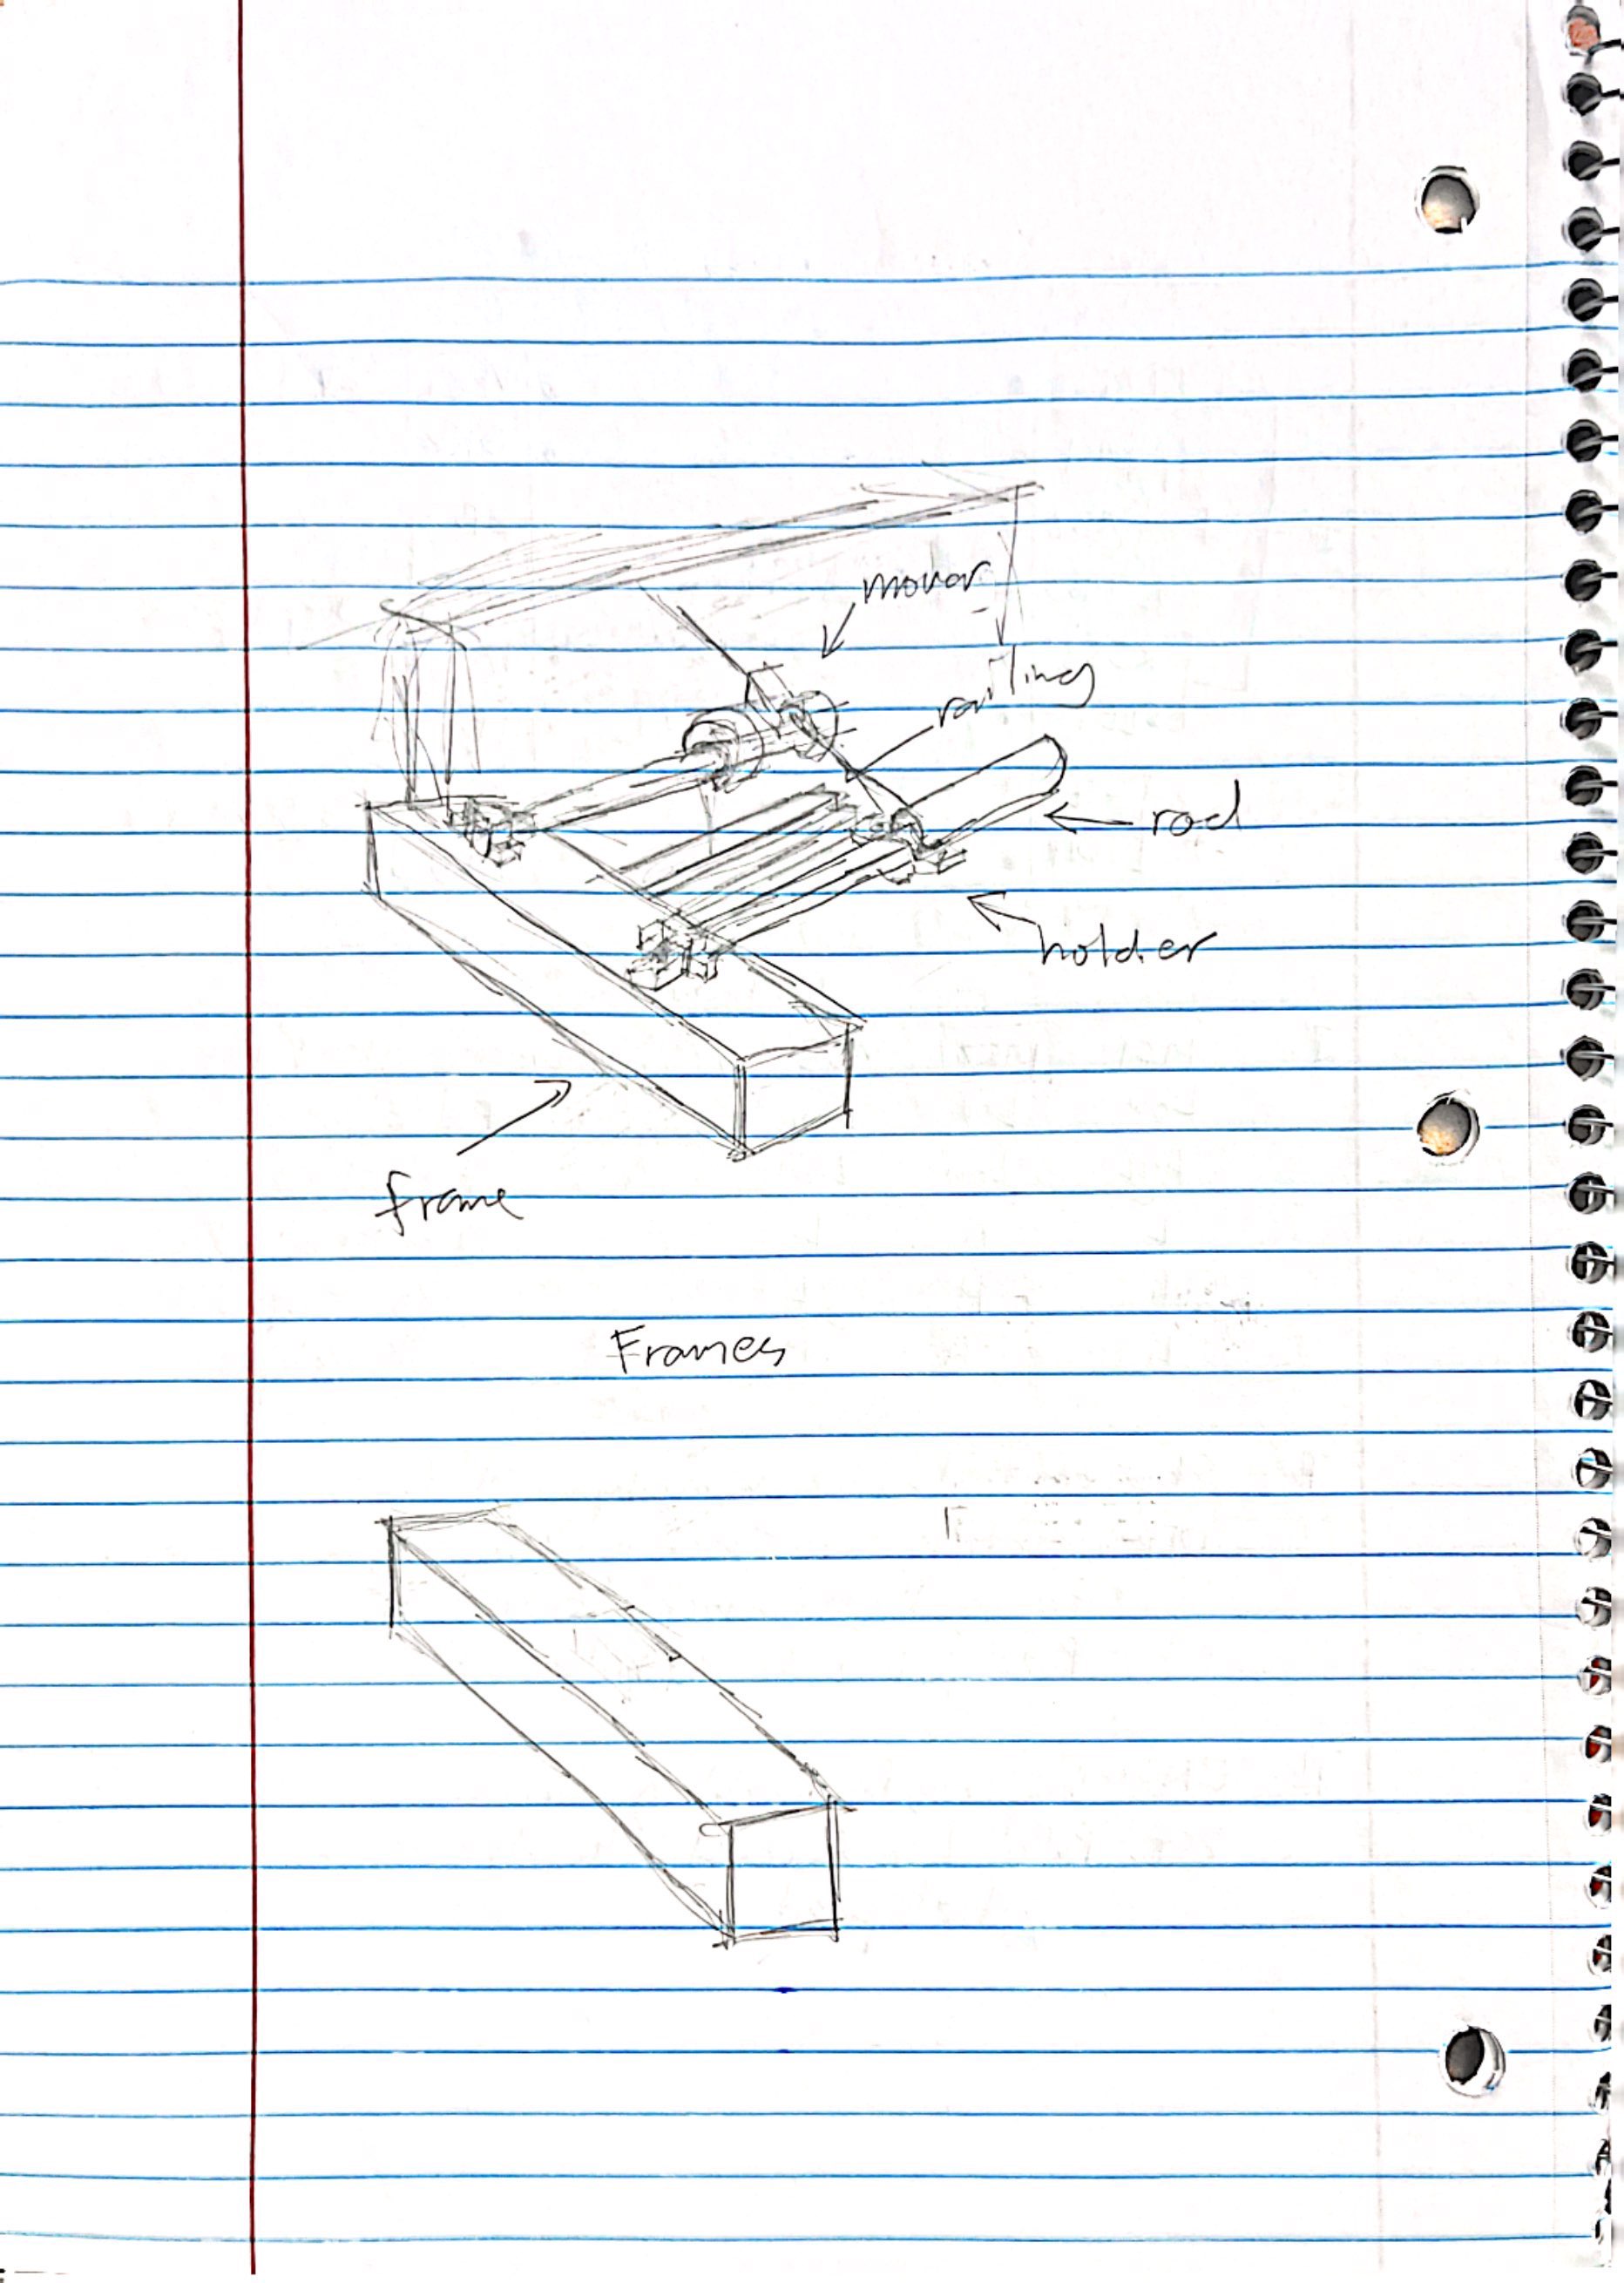 mover
railing
rod
holder
frame
Frames